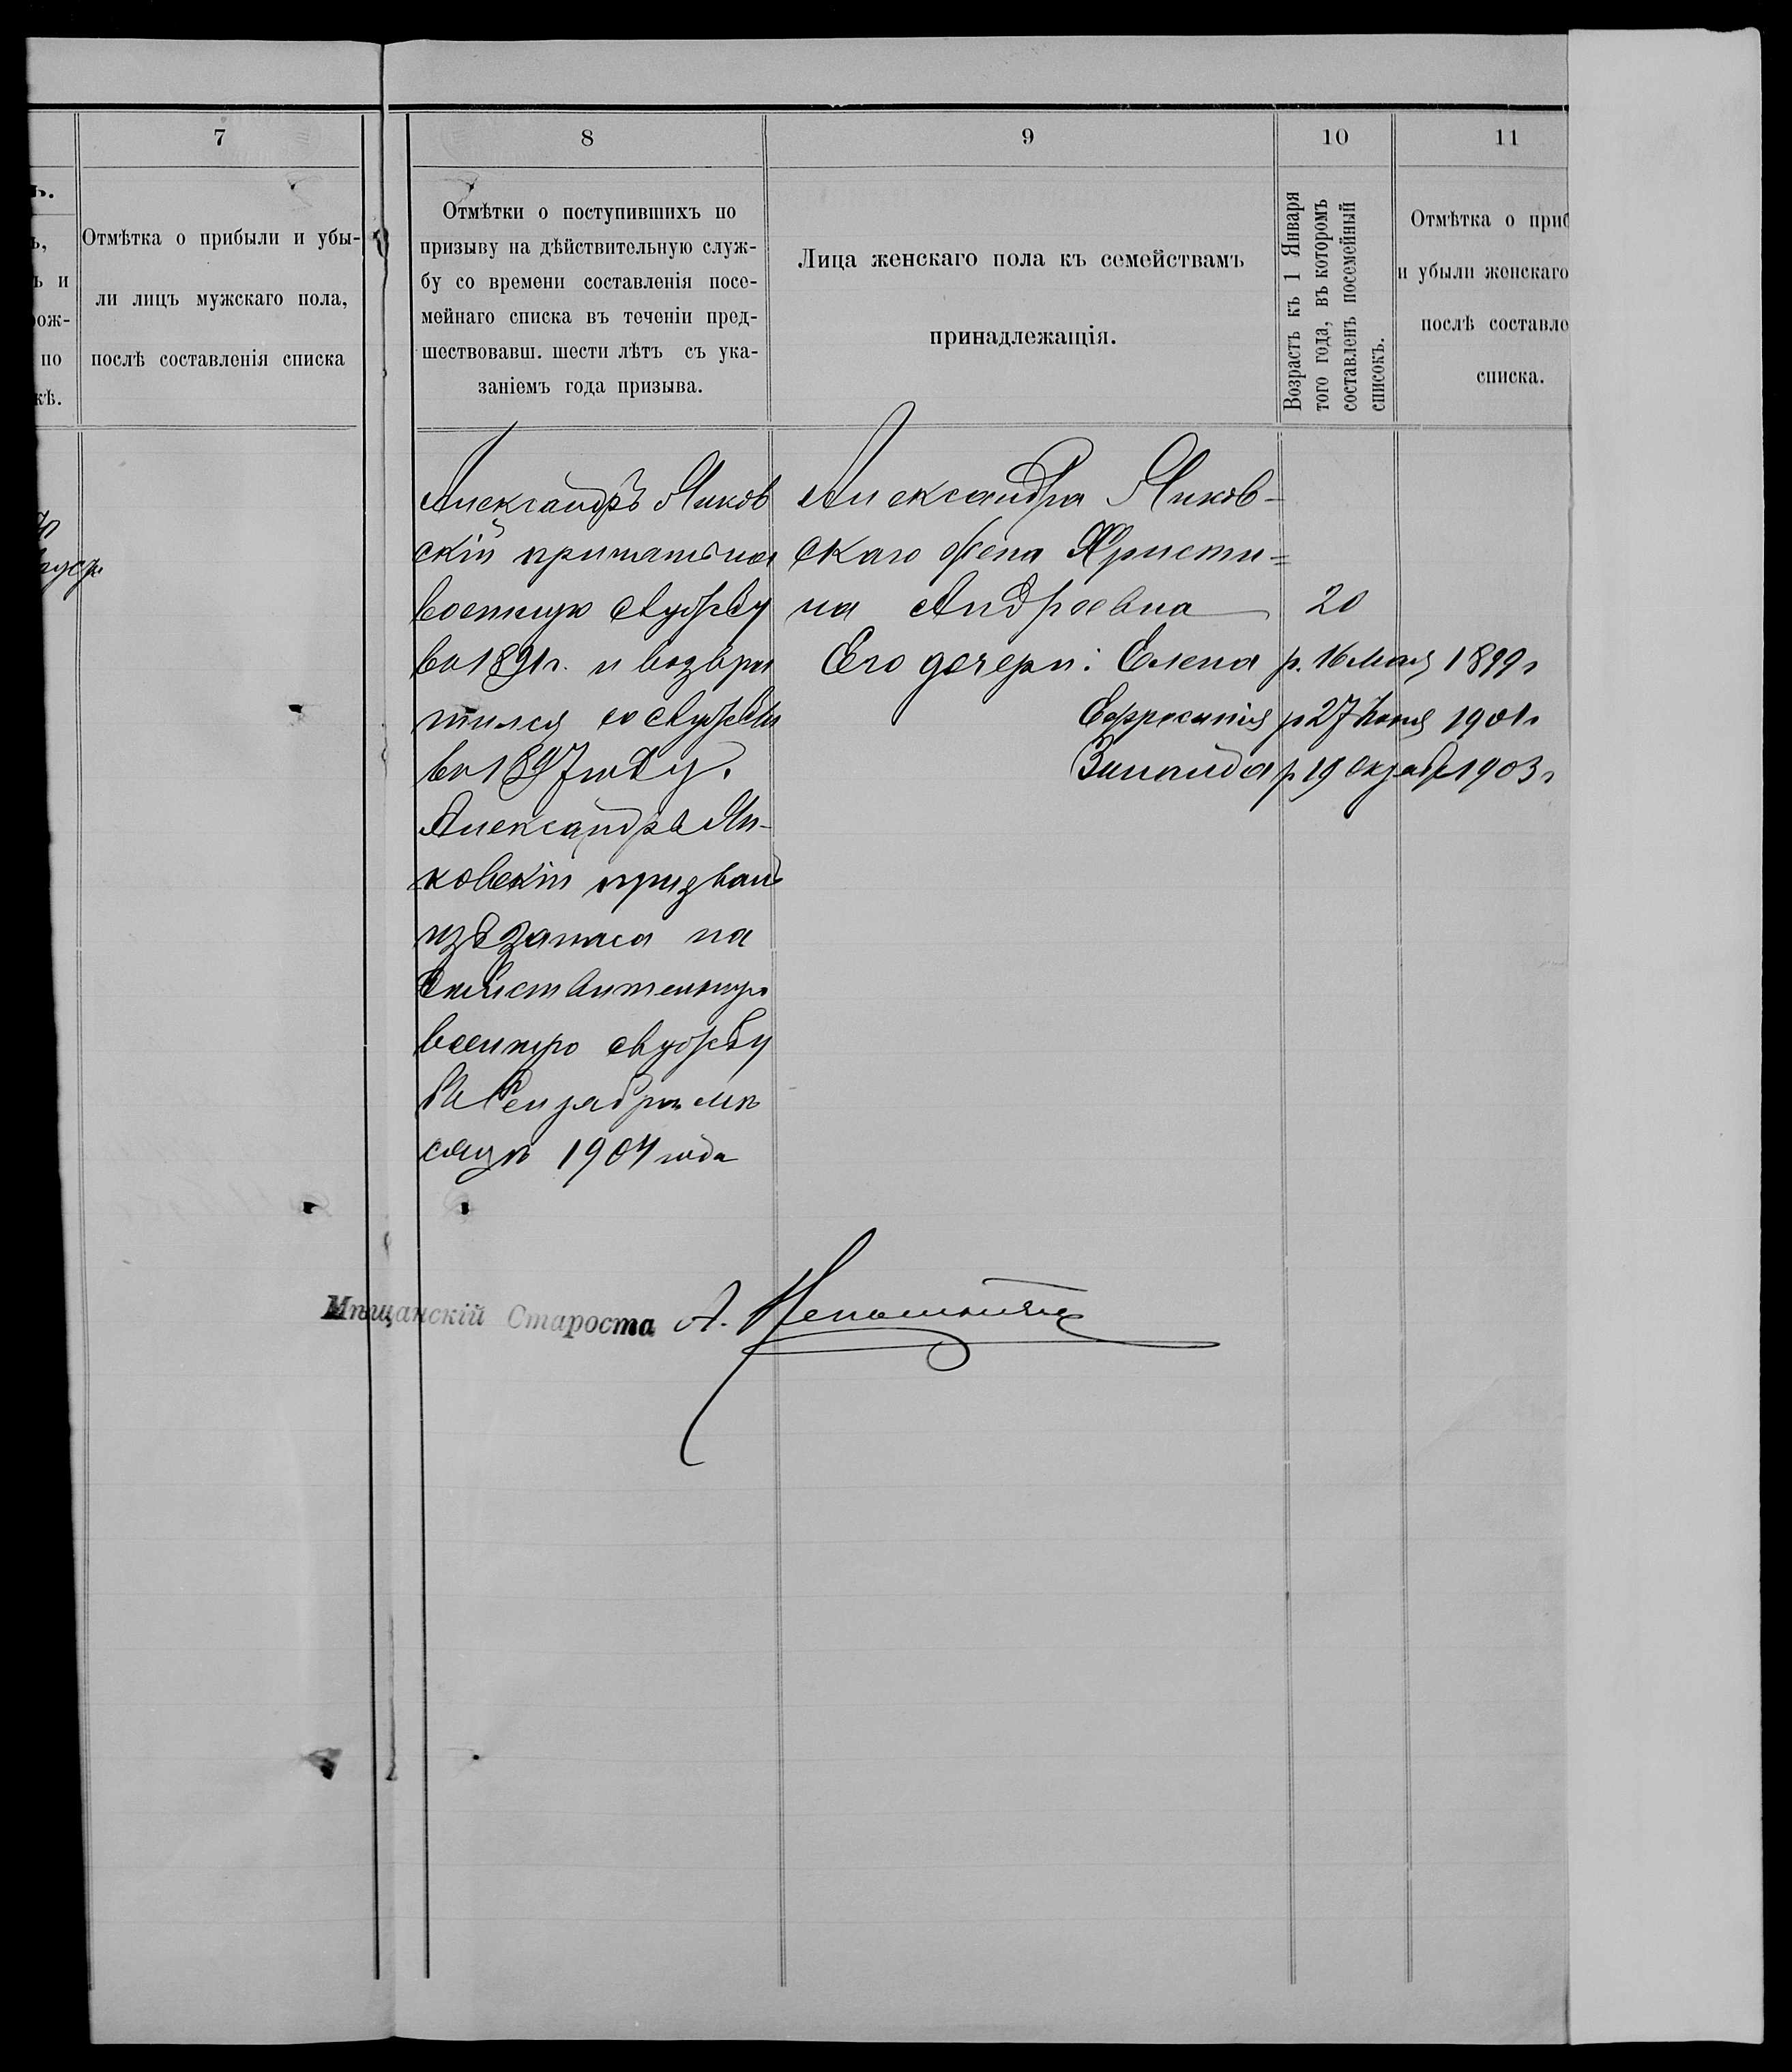 7
8
9
10
11
ъ.
ъ,
ъ и
рож-
по
кѣ.
Отмѣтка о прибыли и убы-
ли лицъ мужскаго пола,
послѣ составленія списка
Отмѣтки о поступившихъ по
призыву на дѣйствительную служ-
бу со времени составленія посе-
мейнаго списка въ теченіи пред-
шествовавш. шести лѣтъ съ ука-
заніемъ года призыва.
Лица женскаго пола къ семействамъ
принадлежащія.
Возрастъ къ 1 Января
того года, въ которомъ
составленъ посемейный
списокъ.
Отмѣтка о приб
и убыли женскаго
послѣ составле
списка.
Александръ
скій принятъ на
военную службу
въ 1891 г. и возвра
тился со службы
въ 1897 году.
Александръ
ковскій призванъ
изъ запаса на
дѣйствительную
военную службу
въ Сентябрѣ мѣ
сяцѣ 1904 года
Александра
скаго жена Христи=
на Андреевна 20
Его дочери: Елена р. 16 Мая 1899 г
Ефросинія р 27 Іюня 1901 г
Зинаида р 19 Октября 1903 г
Мѣщанскій Староста А.